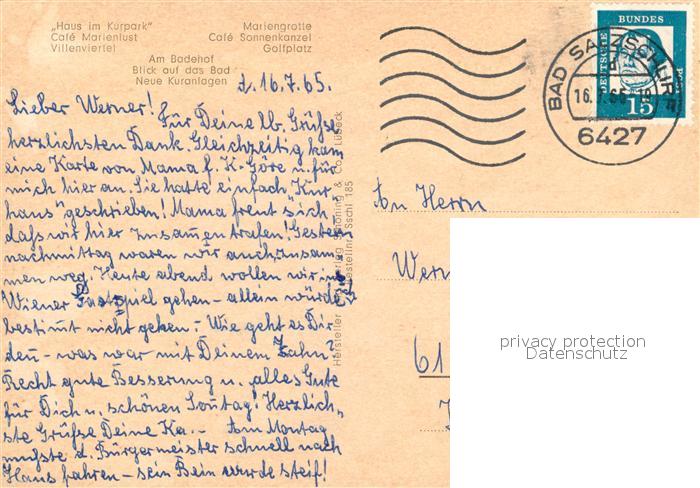 „Haus im Kurpark"
Café Marienlust
Villenviertel
Mariengrotte
Café Sonnenkanzel
Golfplatz
Am Badehof
Blick auf das Bad
Neue Kuranlagen
d. 16.7.65.
Lieber Werner!
Für Deine lb. Grüße
herzlichsten Dank. Gleichzeitig kam
eine Karte von Mama f. K. Göre u. für
mich hier an. Sie hatte einfach „Kur-
haus" geschrieben! Mama freut sich
daß wir hier zusammentrafen! Gestern
nachmittag waren wir auch zusam-
men weg. Heute abend wollen wir ins
Wiener Gastspiel gehen – allein würde
bestimmt nicht gehen. – Wie geht es Dir
denn – was war mit Deinem Zahn?
Recht gute Besserung u. alles Gute
für Dich u. schönen Sonntag! Herzlich-
ste Grüße Deine Ka. – Am Montag
mußte d. Bürgermeister schnell nach
Haus fahren – sein Bein wurde steif!
Hersteller Schöning & Co Lübeck
Bestellnr. Sschl 185
DEUTSCHE BUNDESPOST
15
BAD SALZSCHLIRF
6427
An Herrn
Wern
61
privacy protection
Datenschutz